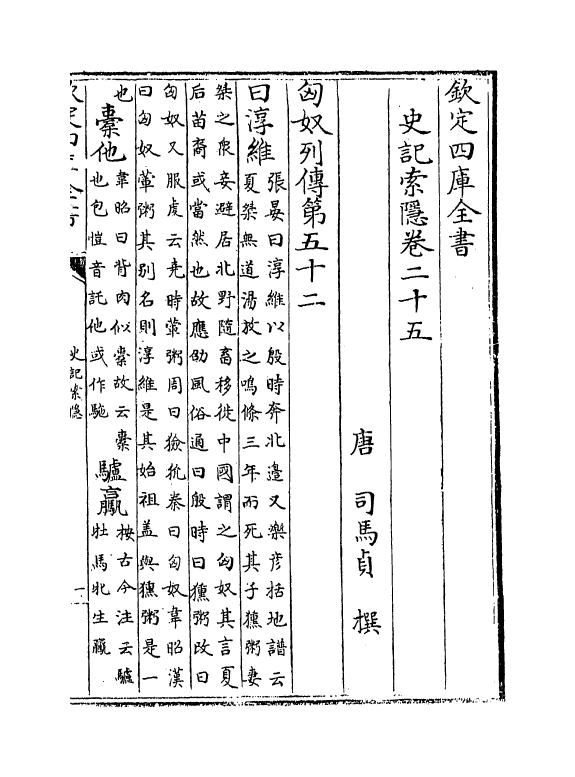 欽定四庫全書
史記索隱卷二十五
唐 司馬貞 撰
匈奴列傳第五十二
曰淳維張晏曰淳維以殷時奔北邊又樂彦括地譜云
夏桀無道湯放之鳴條三年而死其子獯粥妻
桀之衆妾避居北野隨畜移徙中國謂之匈奴其言夏
后苗裔或當然也故應劭風俗通曰殷時曰獯粥改曰
匈奴又服虔云堯時葷粥周曰獫狁秦曰匈奴韋昭漢
曰匈奴葷粥其别名則淳維是其始祖盖與獯粥是一
也
橐他韋昭曰背肉似橐故云橐
也包愷音託他或作駞
驢驘按古今注云驢
牡馬牝生驘
史記索隱
一